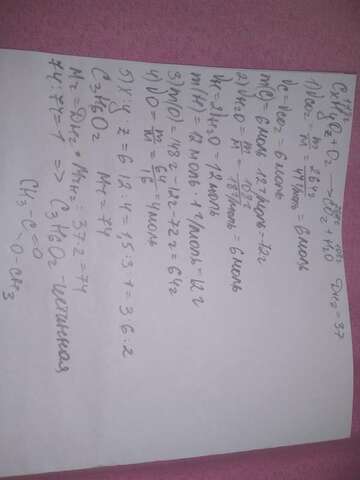 148г 264г 108г
CxHyOz + O2 → CO2 + H2O DH2 = 37
1) νCO2 = m/M = 264г/44г/моль = 6 моль
νC = νCO2 = 6 моль
m(C) = 6 моль · 12 г/моль = 72г
2) νH2O = m/M = 108г/18г/моль = 6 моль
νH = 2νH2O = 12 моль
m(H) = 12 моль · 1 г/моль = 12 г
3) m(O) = 148г - 12г - 72г = 64г
4) νO = m/M = 64/16 = 4 моль
5) x:y:z = 6:12:4 = 1,5:3:1 = 3:6:2
C3H6O2 Mr = 74
Mr = DH2 · MrH2 = 37·2 = 74
74:74 = 1 ⇒ C3H6O2 - истинная
CH3-C=O
-O-CH3